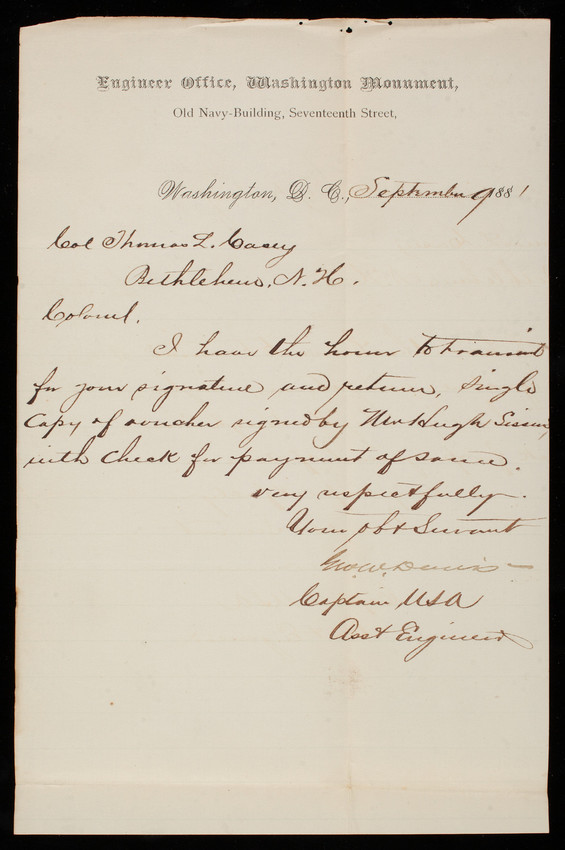 Engineer Office, Washington Monument,
Old Navy-Building, Seventeenth Street,
Washington, D. C., September 9 1881
Col Thomas L. Casey
Bethlehem, N. H.
Colonel.
I have the honor to transmit
for your signature and return, single
Copy of voucher signed by Mr Hugh Sisson,
with Check for payment of same.
very respectfully.
Your obt Servant
Geo W. Davis
Captain USA
Asst Engineer